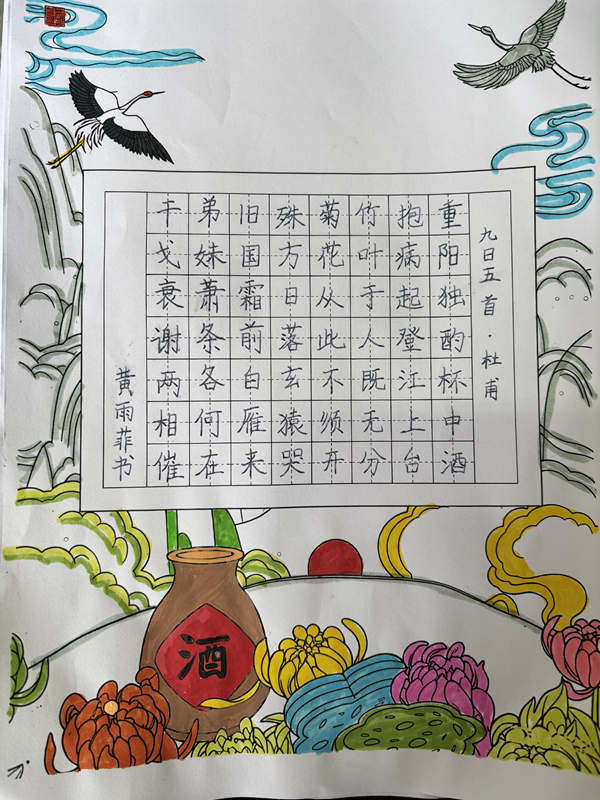 九日五首·杜甫
重阳独酌杯中酒
抱病起登江上台
竹叶于人既无分
菊花从此不须开
殊方日落玄猿哭
旧国霜前白雁来
弟妹萧条各何在
干戈衰谢两相催
黄雨菲书
酒